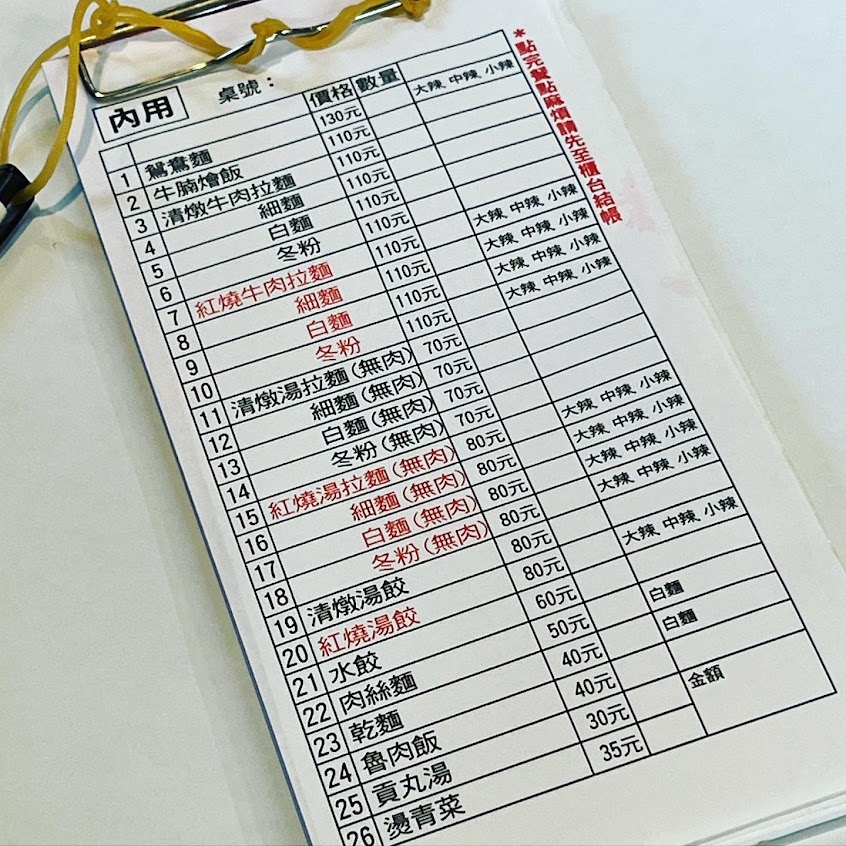 內用 桌號：
價格 數量
1 鴛鴦麵 130元 大辣、中辣、小辣
2 牛腩燴飯 110元
3 清燉牛肉拉麵 110元
4 細麵 110元
5 白麵 110元
6 冬粉 110元
7 紅燒牛肉拉麵 110元 大辣、中辣、小辣
8 細麵 110元 大辣、中辣、小辣
9 白麵 110元 大辣、中辣、小辣
10 冬粉 110元 大辣、中辣、小辣
11 清燉湯拉麵(無肉) 70元
12 細麵(無肉) 70元
13 白麵(無肉) 70元
14 冬粉(無肉) 70元
15 紅燒湯拉麵(無肉) 80元 大辣、中辣、小辣
16 細麵(無肉) 80元 大辣、中辣、小辣
17 白麵(無肉) 80元 大辣、中辣、小辣
18 冬粉(無肉) 80元 大辣、中辣、小辣
19 清燉湯餃 80元
20 紅燒湯餃 80元 大辣、中辣、小辣
21 水餃 60元
22 肉絲麵 50元 白麵
23 乾麵 40元 白麵
24 魯肉飯 40元
25 貢丸湯 30元 金額
26 燙青菜 35元
*點完餐點麻煩請先至櫃台結帳